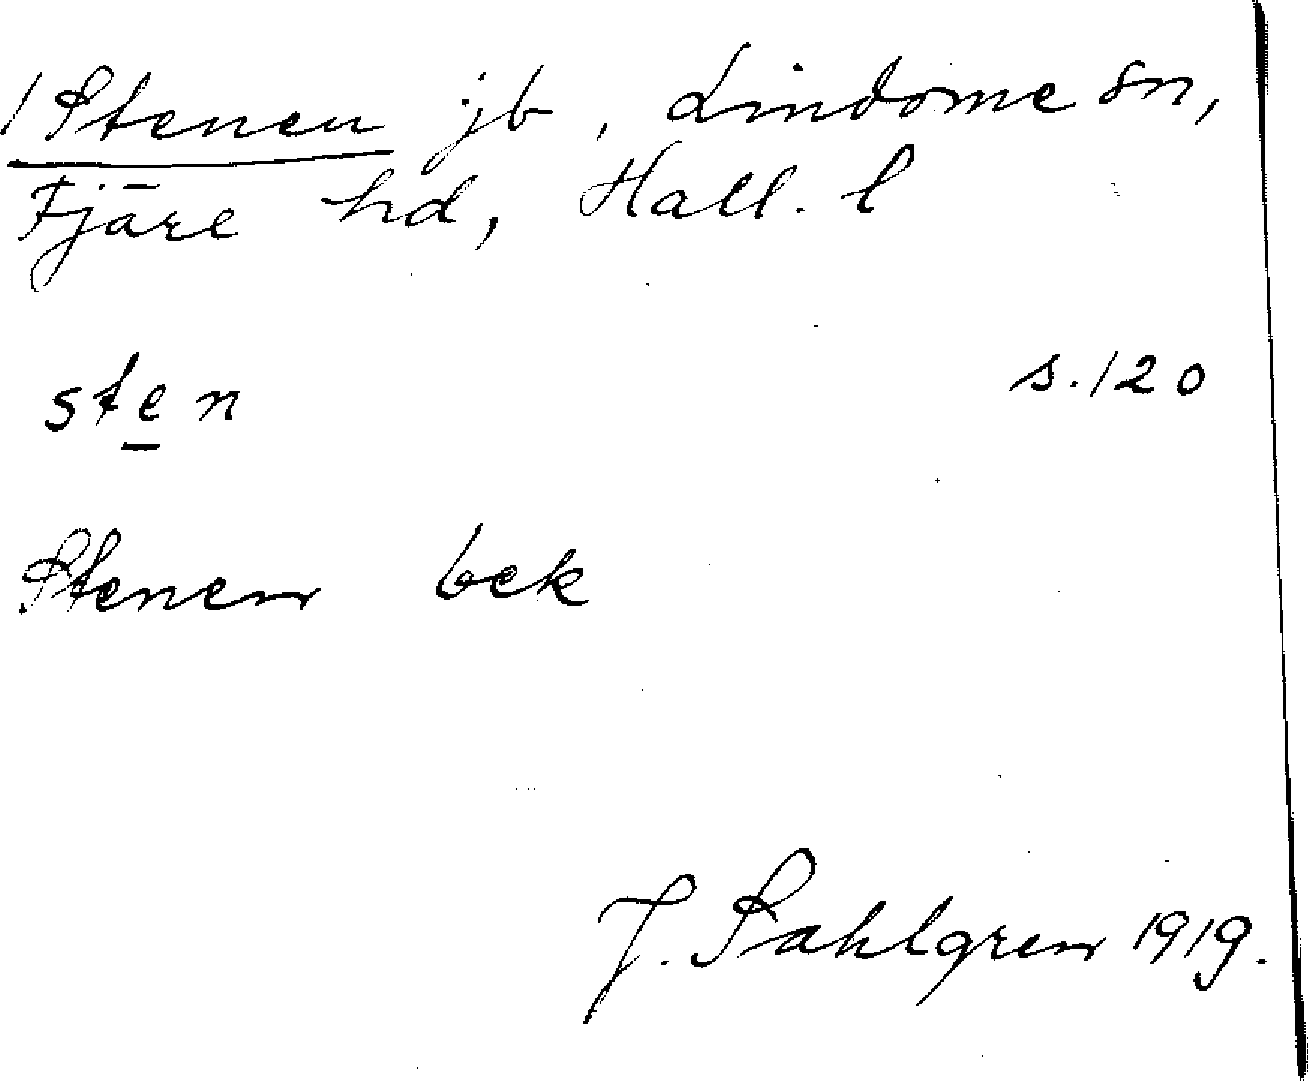 /Stenen jb, Lindome sn,
Fjäre hd, Hall. l
sten s. 120
Stenen bek
J. Sahlgren 1919.